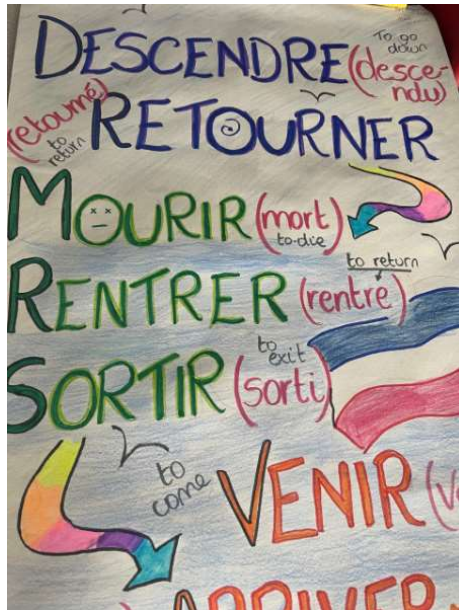 DESCENDRE (descendu) To go down
RETOURNER (retourné) to return
MOURIR (mort) to die
RENTRER (rentre) to return
SORTIR (sorti) to exit
to come VENIR
ARRIVER